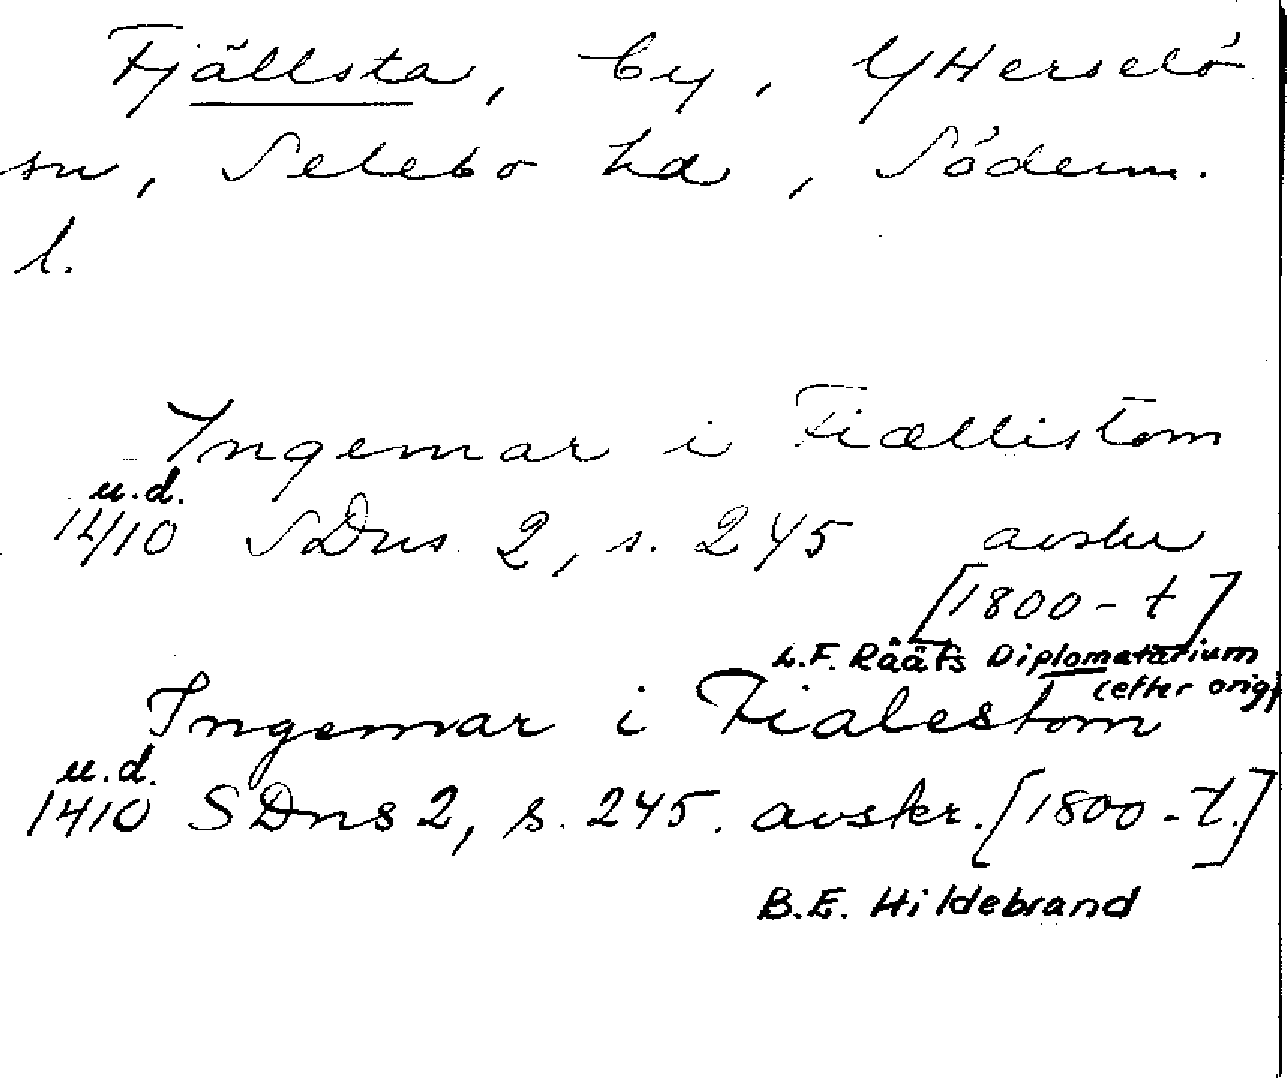 Fjällsta, by, YHerselö
sn, Selebo hd, Söderm.
l.
Ingemar i Fiællistom
u.d.
1410 SDns 2, s. 245 avskr
[1800-t]
L.F. Rääfs Diplomatarium
(efter orig)
Ingemar i Fialestom
u.d.
1410 SDns 2, s. 245. avskr. [1800-t.]
B.E. Hildebrand